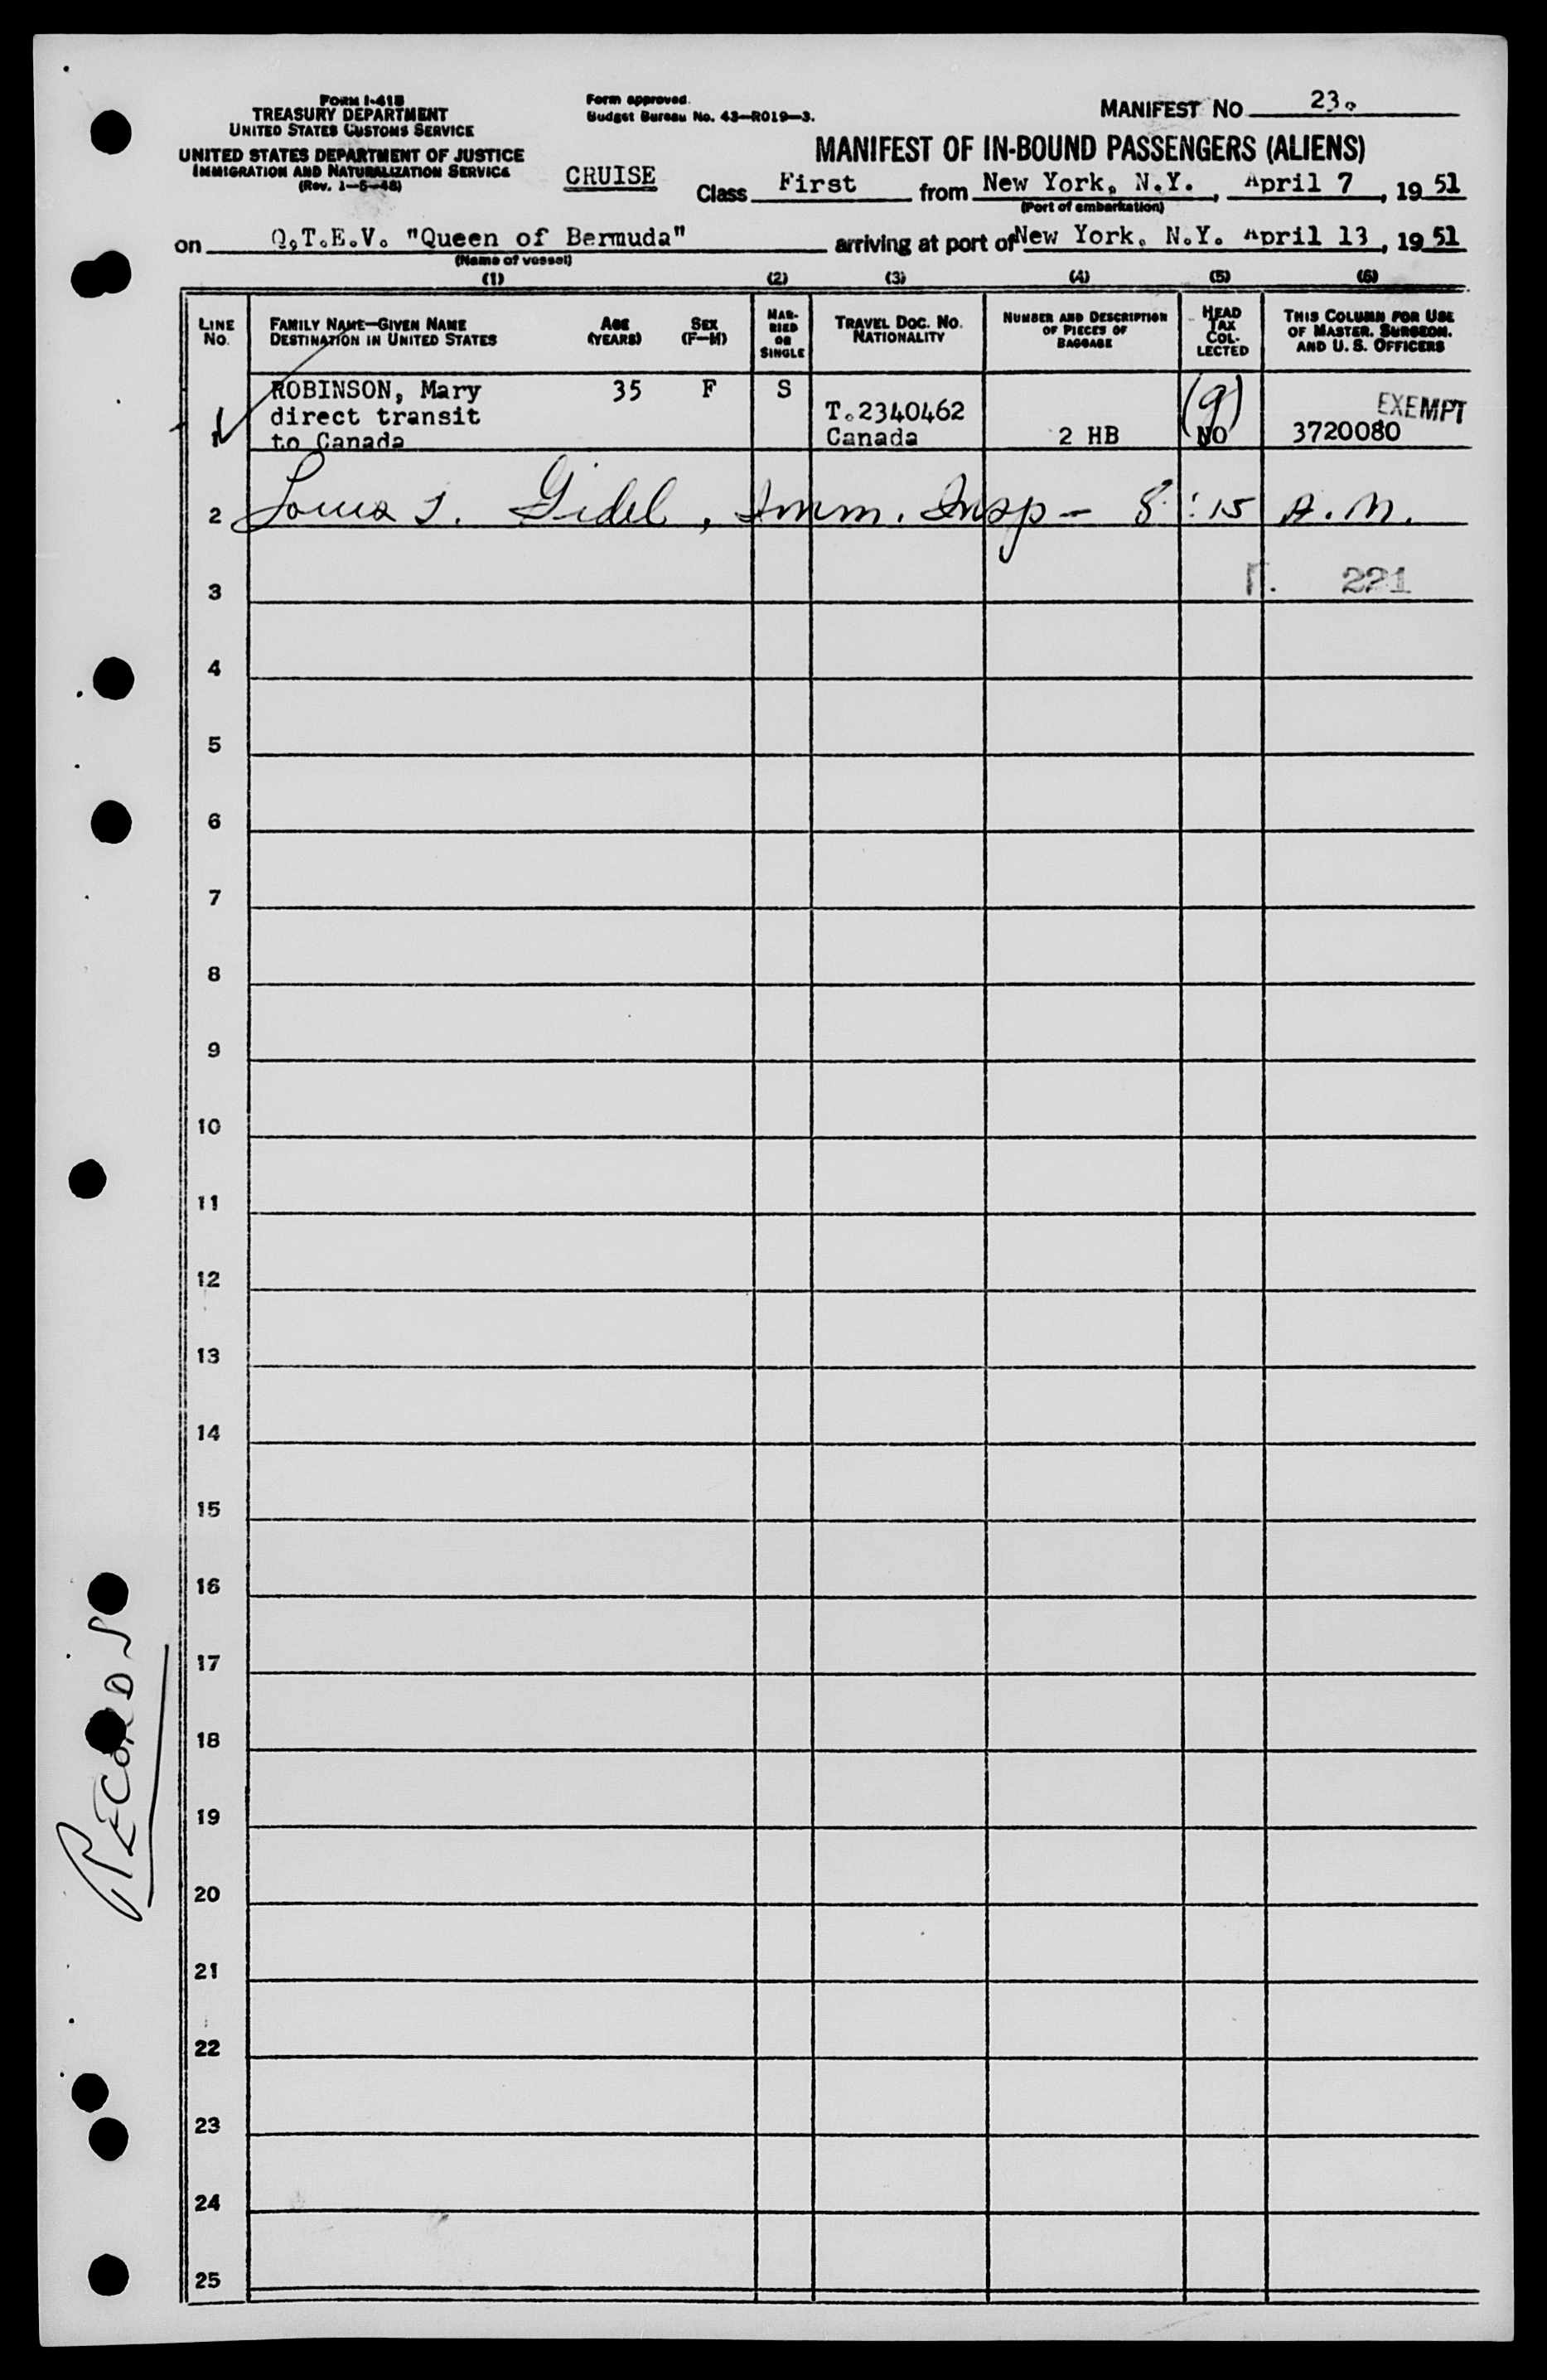 FORM I-418
TREASURY DEPARTMENT
UNITED STATES CUSTOMS SERVICE
UNITED STATES DEPARTMENT OF JUSTICE
IMMIGRATION AND NATURALIZATION SERVICE
(Rev. 1-5-48)
Form approved.
Budget Bureau No. 43-R019-3.
MANIFEST NO 23.
MANIFEST OF IN-BOUND PASSENGERS (ALIENS)
CRUISE Class First from New York, N.Y., April 7, 19 51
(Port of embarkation)
on Q.T.E.V. "Queen of Bermuda" arriving at port of New York, N.Y. April 13, 19 51
(Name of vessel)
(1) (2) (3) (4) (5) (6)
LINE NO. FAMILY NAME—GIVEN NAME DESTINATION IN UNITED STATES AGE (YEARS) SEX (F-M) MARRIED OR SINGLE TRAVEL DOC. NO. NATIONALITY NUMBER AND DESCRIPTION OF PIECES OF BAGGAGE HEAD TAX COLLECTED THIS COLUMN FOR USE OF MASTER, SURGEON, AND U. S. OFFICERS
ROBINSON, Mary 35 F S
direct transit T.2340462 (9) EXEMPT
1 to Canada Canada 2 HB NO 3720080
2 Louis J. Gidel, Imm. Insp - 8:15 A.M.
3 221
4
5
6
7
8
9
10
11
12
13
14
15
16
17
18
19
20
21
22
23
24
25
RECORDS